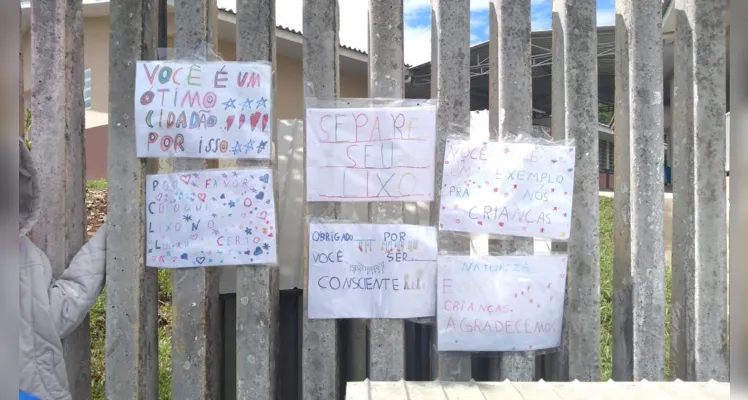 VOCÊ É UM
OTIMO
CIDADÃO
POR ISSO...
POR FAVOR
COLOQUE
LIXO NO
LUGAR CERTO
SEPARE
SEU
LIXO
OBRIGADO POR
VOCÊ SER
CONSCIENTE
VOCÊ É
UM EXEMPLO
PRA NÓS
CRIANÇAS
NATUREZA
E
CRIANÇAS
AGRADECEMOS